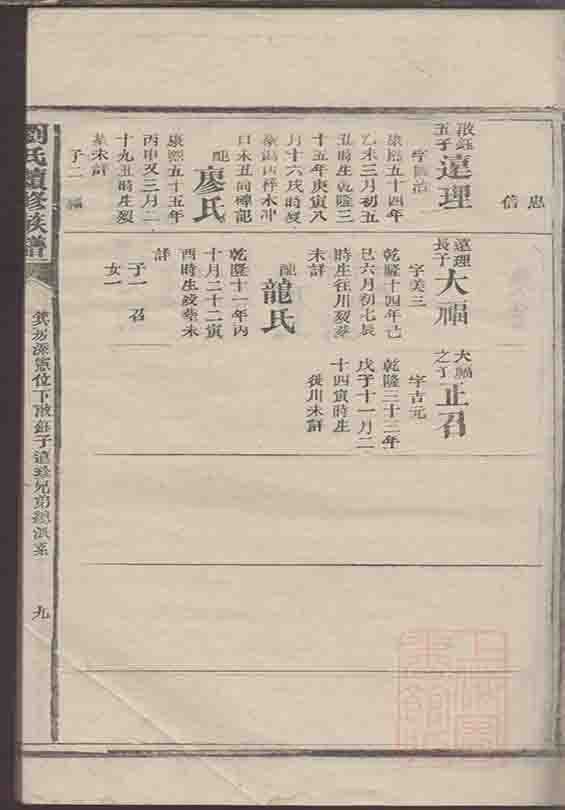 忠
信
啟鈺五子 遠理
康熙五十四年
乙未三月初五
丑時生乾隆三
十五年庚寅八
月十六戌時歿
口未丑向碑記
配廖氏
康熙五十五年
丙申又三月二
十九丑時生歿
葬未詳
子二
遠理長子 大福
字美三
乾隆十四年己
巳六月初七辰
時生往川歿葬
未詳
配龍氏
乾隆十一年丙
十月二十二寅
酉時生歿葬未
詳
子一 召
女一
大福之子 正召
字古元
乾隆三十三年
戊子十一月二
十四寅時生
從川未詳
劉氏續修族譜
位下啟鈺子遠珍兄弟總派系
九